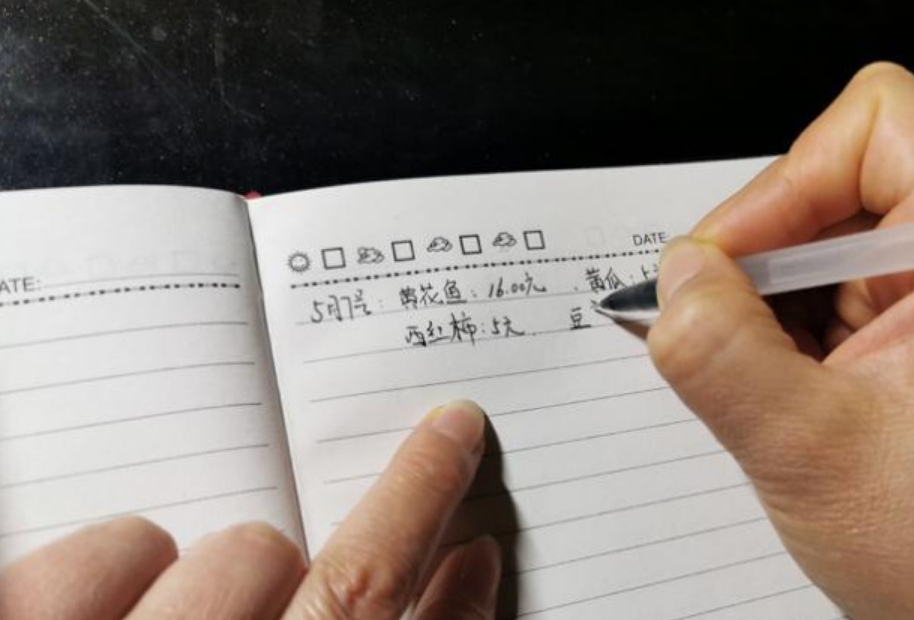 ATE:
DATE:
5月7号: 黄花鱼: 16.00元 . 黄瓜: 5元
西红柿: 5元. 豆